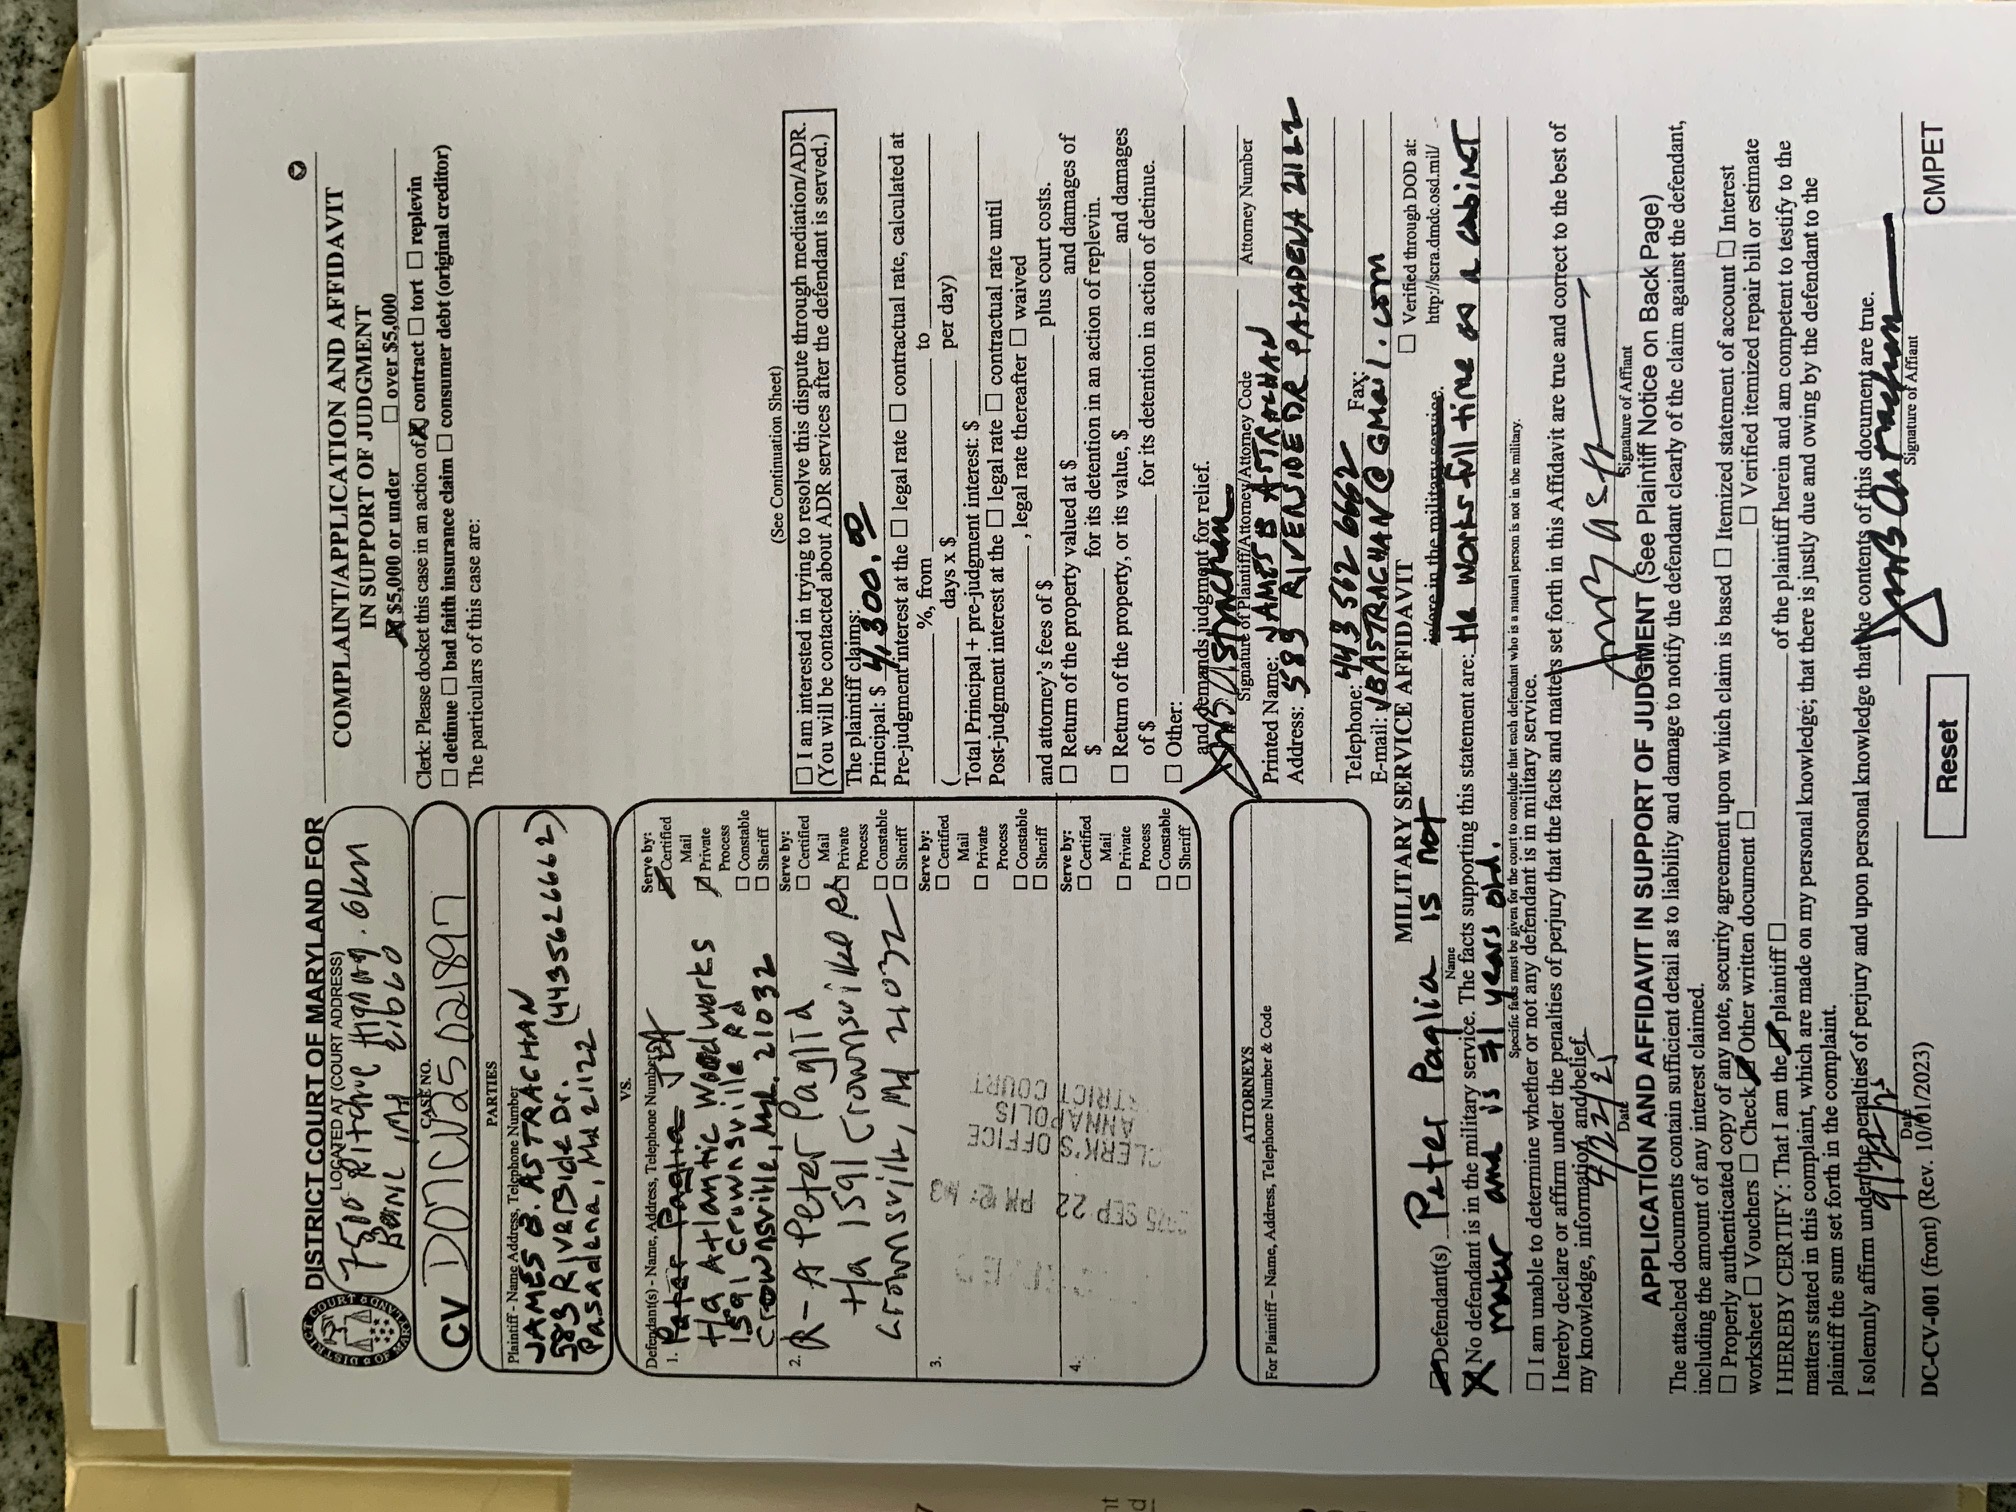 DISTRICT COURT OF MARYLAND FOR
LOCATED AT (COURT ADDRESS)
7500 Ritchie Highway. Glen
Burnie, Md 21060
CASE NO.
CV D07CV25021897
PARTIES
Plaintiff - Name Address, Telephone Number
JAMES B. ASTRACHAN
583 Riverside Dr. (4435626662)
Pasadena, Md 21122
VS.
Defendant(s) - Name, Address, Telephone Number
Serve by:
1. Peter Paglia JBA
t/a Atlantic Woodworks
1591 Crownsville Rd
Crownsville, Md. 21032
☑ Certified
Mail
☑ Private
Process
☐ Constable
☐ Sheriff
2. R-A Peter Paglia
t/a 1591 Crownsville Rd
Crownsville, Md 21032
Serve by:
☐ Certified
Mail
☐ Private
Process
☐ Constable
☐ Sheriff
3.
Serve by:
☐ Certified
Mail
☐ Private
Process
☐ Constable
☐ Sheriff
4.
Serve by:
☐ Certified
Mail
☐ Private
Process
☐ Constable
☐ Sheriff
SEP 22 PM 2:43
CLERK'S OFFICE
ANNAPOLIS
STRICT COURT
ATTORNEYS
For Plaintiff – Name, Address, Telephone Number & Code
COMPLAINT/APPLICATION AND AFFIDAVIT
IN SUPPORT OF JUDGMENT
☒ $5,000 or under ☐ over $5,000
Clerk: Please docket this case in an action of ☒ contract ☐ tort ☐ replevin
☐ detinue ☐ bad faith insurance claim ☐ consumer debt (original creditor)
The particulars of this case are:
(See Continuation Sheet)
☐ I am interested in trying to resolve this dispute through mediation/ADR.
(You will be contacted about ADR services after the defendant is served.)
The plaintiff claims:
Principal: $ 4,300.00
Pre-judgment interest at the ☐ legal rate ☐ contractual rate, calculated at
%, from to
( days x $ per day)
Total Principal + pre-judgment interest: $
Post-judgment interest at the ☐ legal rate ☐ contractual rate until
, legal rate thereafter ☐ waived
and attorney's fees of $ plus court costs.
☐ Return of the property valued at $ and damages of
$ for its detention in an action of replevin.
☐ Return of the property, or its value, $ and damages
of $ for its detention in action of detinue.
☐ Other:
and demands judgment for relief.
JmB Astrachan
Signature of Plaintiff/Attorney/Attorney Code Attorney Number
Printed Name: JAMES B ASTRACHAN
Address: 583 RIVERSIDE DR PASADENA 21122
Telephone: 443 562 6662 Fax:
E-mail: JBASTRACHAN@GMail.com
MILITARY SERVICE AFFIDAVIT
☐ Verified through DOD at:
http://scra.dmdc.osd.mil/
☑ Defendant(s) Peter Paglia is not is/are in the military service.
Name
☒ No defendant is in the military service. The facts supporting this statement are: He works full time as a cabinet
maker and is 71 years old.
Specific facts must be given for the court to conclude that each defendant who is a natural person is not in the military.
☐ I am unable to determine whether or not any defendant is in military service.
I hereby declare or affirm under the penalties of perjury that the facts and matters set forth in this Affidavit are true and correct to the best of
my knowledge, information, and belief.
9/22/25 JmB Ast
Date Signature of Affiant
APPLICATION AND AFFIDAVIT IN SUPPORT OF JUDGMENT (See Plaintiff Notice on Back Page)
The attached documents contain sufficient detail as to liability and damage to notify the defendant clearly of the claim against the defendant,
including the amount of any interest claimed.
☐ Properly authenticated copy of any note, security agreement upon which claim is based ☐ Itemized statement of account ☐ Interest
worksheet ☐ Vouchers ☐ Check ☑ Other written document ☐ ☐ Verified itemized repair bill or estimate
I HEREBY CERTIFY: That I am the ☑ plaintiff ☐ of the plaintiff herein and am competent to testify to the
matters stated in this complaint, which are made on my personal knowledge; that there is justly due and owing by the defendant to the
plaintiff the sum set forth in the complaint.
I solemnly affirm under the penalties of perjury and upon personal knowledge that the contents of this document are true.
9/22/25 JmB Astrachan
Date Signature of Affiant
DC-CV-001 (front) (Rev. 10/01/2023)
Reset
CMPET